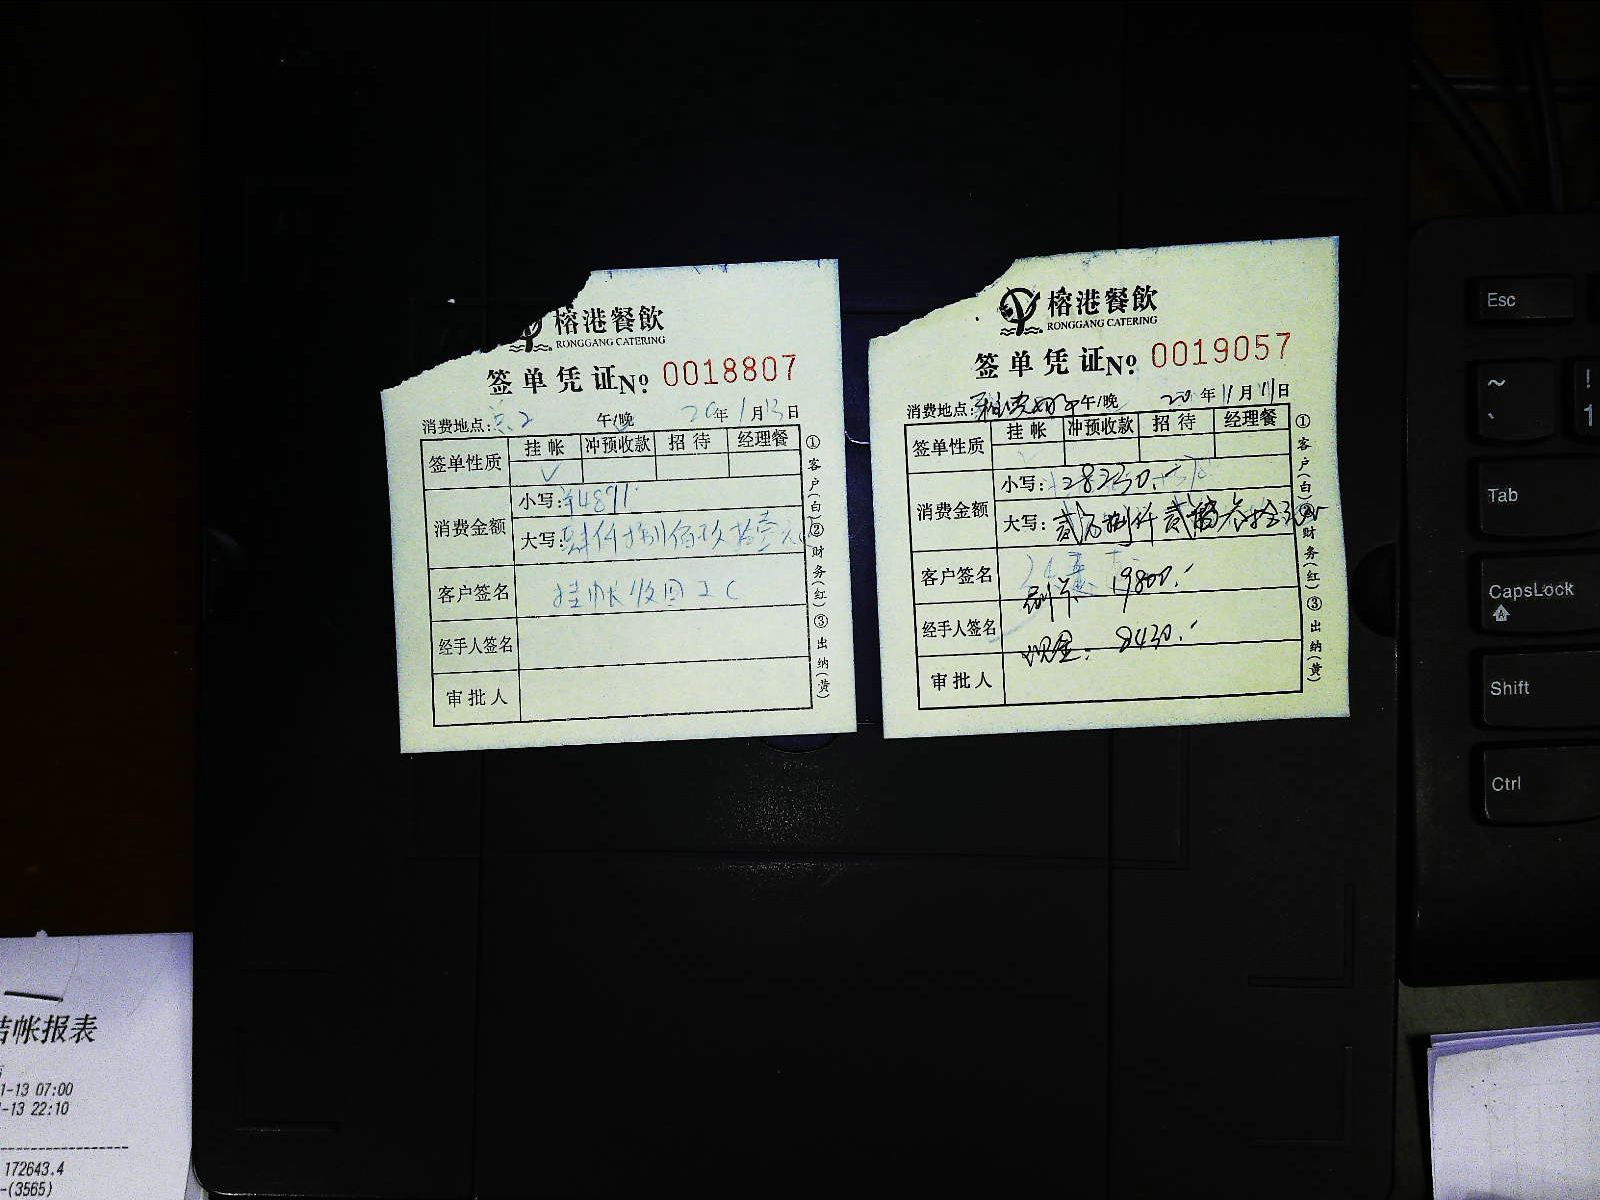 榕港餐飲
RONGGANG CATERING
签单凭证 № 0018807
消费地点: 午/晚 20年1月13日
签单性质 挂帐 冲预收款 招待 经理餐
✓
消费金额
小写: ¥4891.
大写: 肆仟捌佰玖拾壹元
客户签名 挂帐收回IC
经手人签名
审批人
①客户(白)②财务(红)③出纳(黄)
榕港餐飲
RONGGANG CATERING
签单凭证 № 0019057
消费地点: 午/晚 20年11月11日
签单性质 挂帐 冲预收款 招待 经理餐
消费金额
小写: 28230.
大写: 贰万捌仟贰佰
客户签名
刷卡 19800.-
经手人签名
现金: 8430.-
审批人
①客户(白)②财务(红)③出纳(黄)
结帐报表
1-13 07:00
-13 22:10
172643.4
-(3565)
Esc
~
`
!
1
Tab
CapsLock
Shift
Ctrl